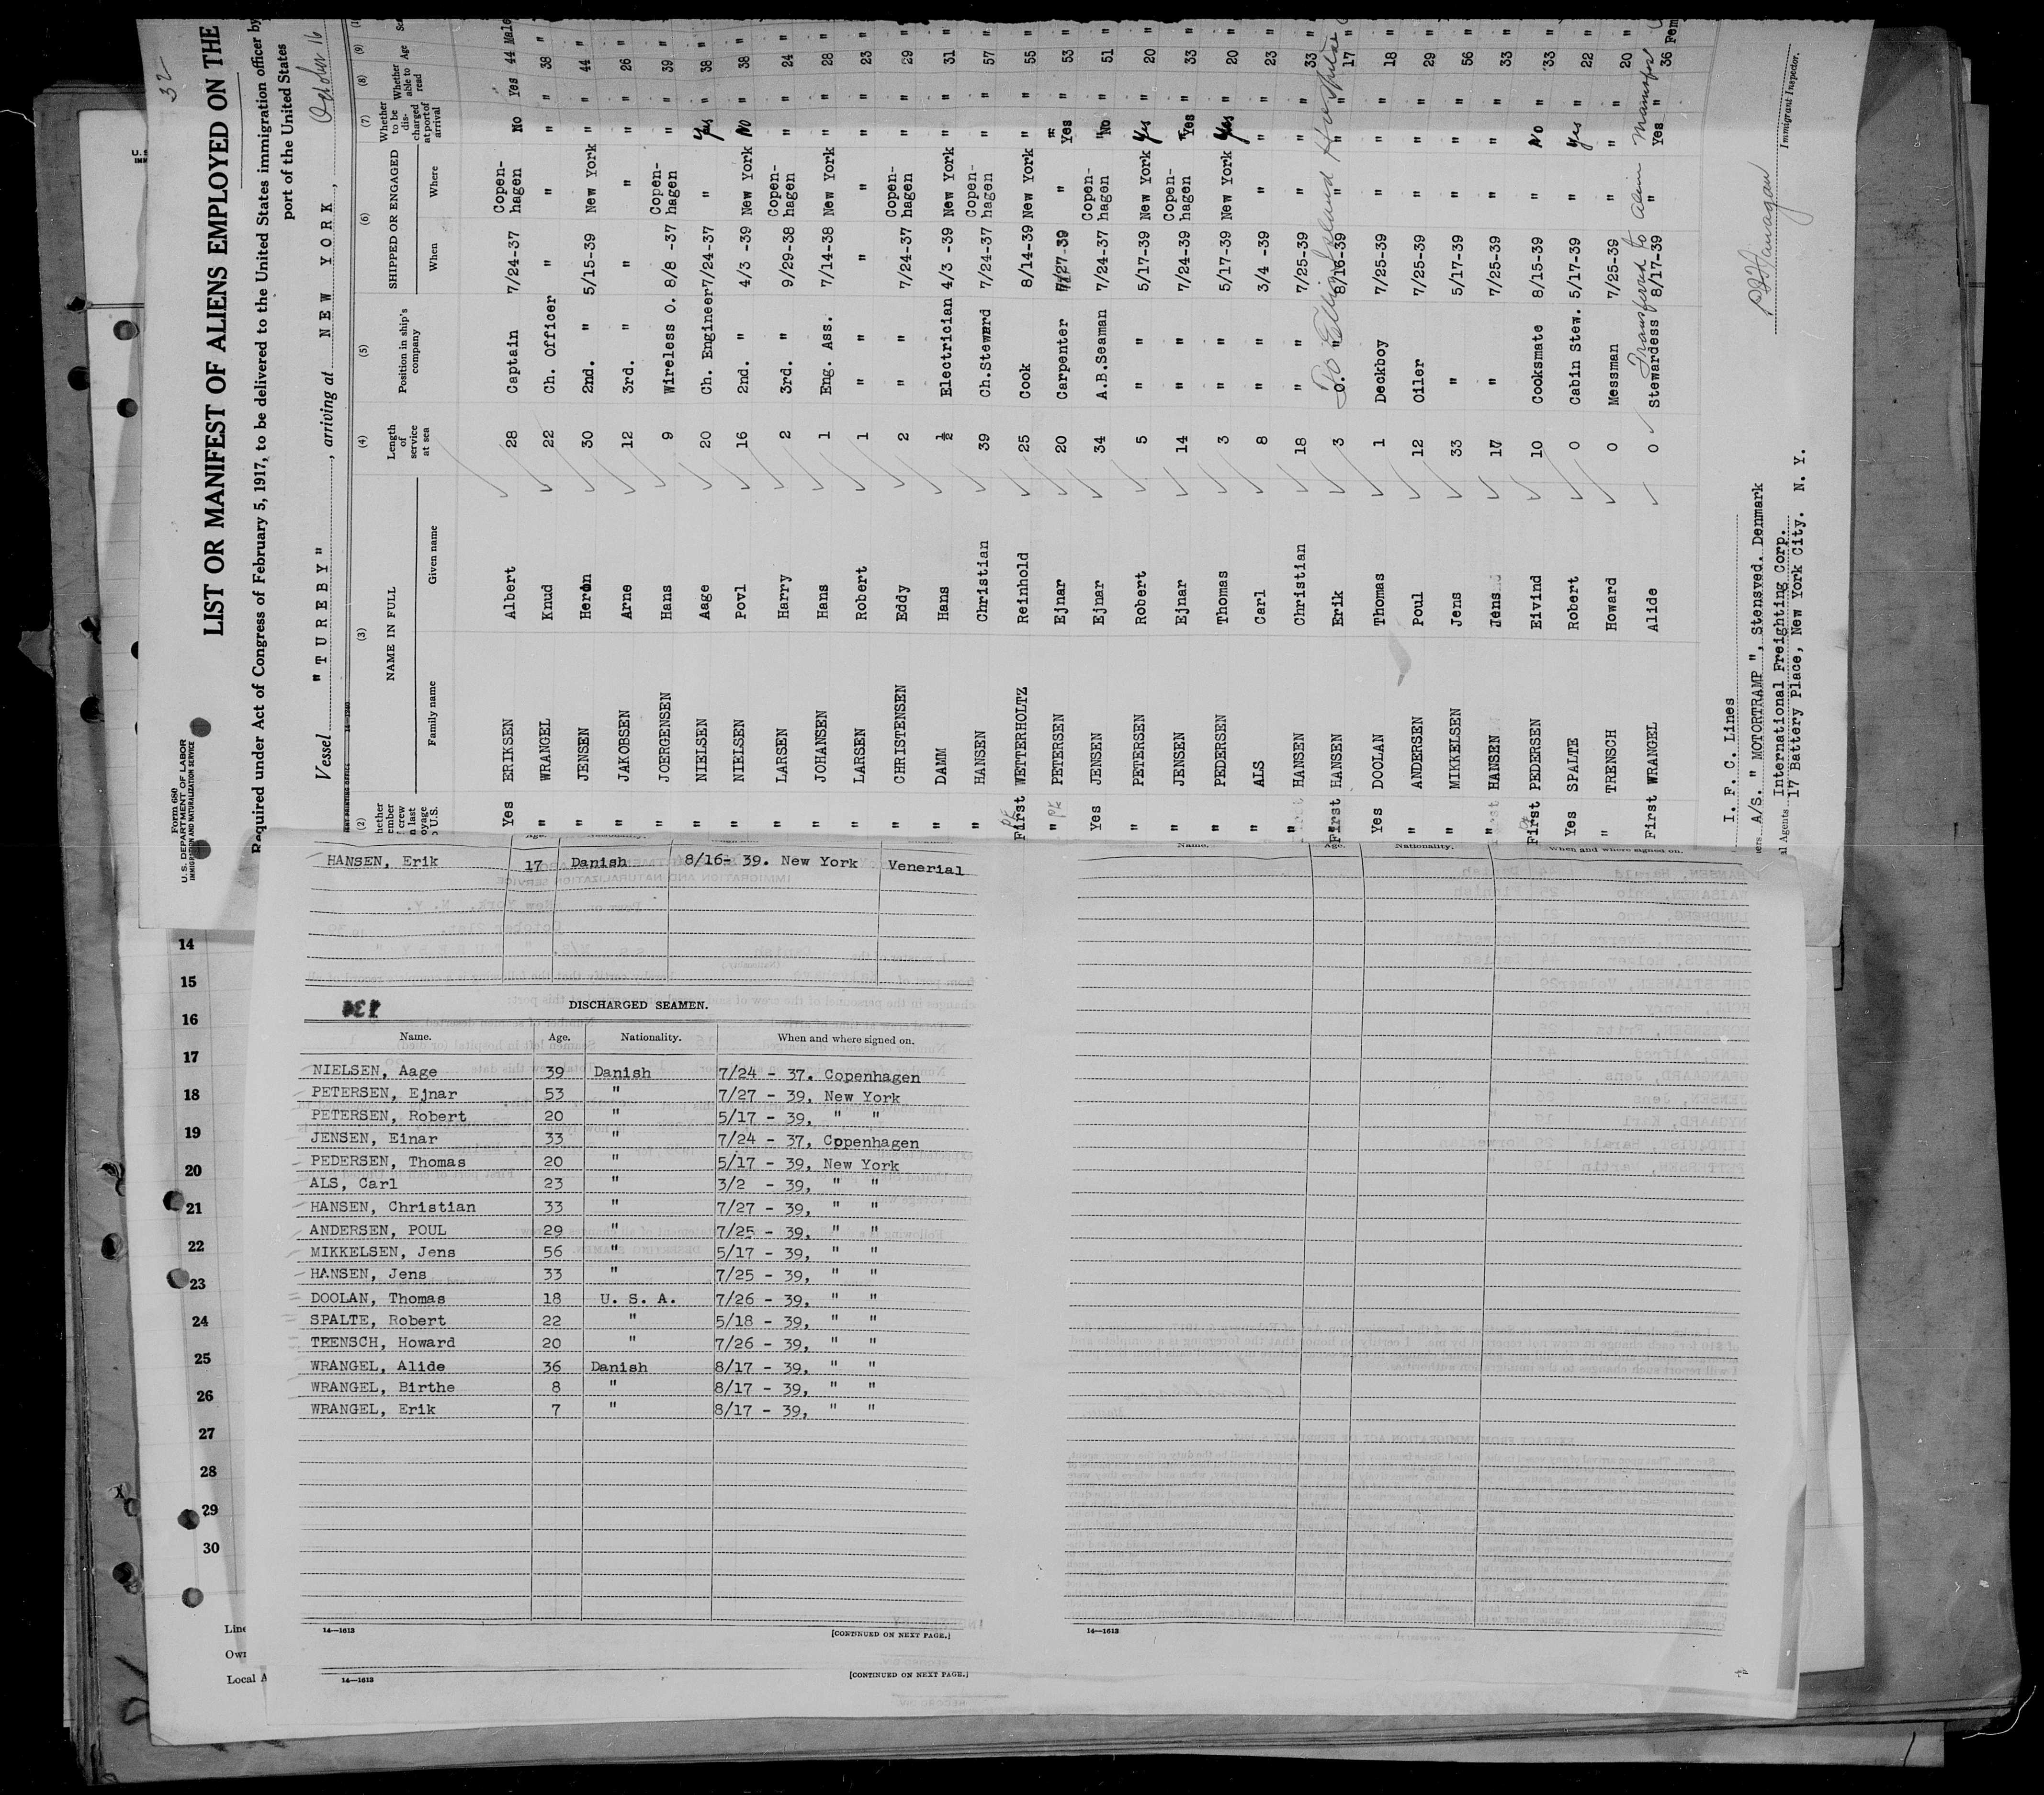 32
Form 680
U. S. DEPARTMENT OF LABOR
IMMIGRATION AND NATURALIZATION SERVICE
LIST OR MANIFEST OF ALIENS EMPLOYED ON THE
Required under Act of Congress of February 5, 1917, to be delivered to the United States immigration officer by
port of the United States
Vessel "TUREBY", arriving at NEW YORK, October 16
(2) (3) (4) (5) (6) (7) (8) (9)
NAME IN FULL
Family name Given name
Length of service at sea
Position in ship's company
SHIPPED OR ENGAGED
When Where
Whether to be discharged at port of arrival
Whether able to read
Age
Yes ERIKSEN Albert 28 Captain 7/24-37 Copenhagen No Yes 44 Male
" WRANGEL Knud 22 Ch. Officer " " " " 38 "
" JENSEN 30 2nd. " 5/15-39 New York " " 44 "
" JAKOBSEN Arne 12 3rd. " " " " " 26 "
" JOERGENSEN Hans 9 Wireless O. 8/8 -37 Copenhagen " " 39 "
" NIELSEN Aage 20 Ch. Engineer 7/24-37 " Yes " 38 "
" NIELSEN Povl 16 2nd. " 4/3 -39 New York No " 38 "
" LARSEN Harry 2 3rd. " 9/29-38 Copenhagen " " 24 "
" JOHANSEN Hans 1 Eng. Ass. 7/14-38 New York " " 28 "
" LARSEN Robert 1 " " " " " 23 "
" CHRISTENSEN Eddy 2 " 7/24-37 Copenhagen " " 29 "
" DAMM Hans ½ Electrician 4/3 -39 New York " " 31 "
" HANSEN Christian 39 Ch.Steward 7/24-37 Copenhagen " " 57 "
First WETTERHOLTZ Reinhold 25 Cook 8/14-39 New York " " 55 "
" PETERSEN Ejnar 20 Carpenter 7/27-39 " Yes " 53 "
Yes JENSEN Ejnar 34 A.B.Seaman 7/24-37 Copenhagen No " 51 "
" PETERSEN Robert 5 " " 5/17-39 New York Yes " 20 "
" JENSEN Ejnar 14 " " 7/24-39 Copenhagen Yes " 33 "
" PEDERSEN Thomas 3 " " 5/17-39 New York Yes " 20 "
" ALS Carl 8 " " 3/4 -39 " " " 23 "
" HANSEN Christian 18 " " 7/25-39 " " " 33 "
First HANSEN Erik 3 O. " 8/16-39 " " " 17 "
To Ellis Island Hospital
Yes DOOLAN Thomas 1 Deckboy 7/25-39 " " " 18 "
" ANDERSEN Poul 12 Oiler 7/25-39 " " " 29 "
" MIKKELSEN Jens 33 " 5/17-39 " " " 56 "
" HANSEN Jens 17 " 7/25-39 " " " 33 "
First PEDERSEN Eivind 10 Cooksmate 8/15-39 " No " 33 "
Yes SPALTE Robert 0 Cabin Stew. 5/17-39 " Yes " 22 "
" TRENSCH Howard 0 Messman 7/25-39 " " " 20 "
Transferred to Alien Manifest
First WRANGEL Alide 0 Stewardess 8/17-39 " Yes " 36 Fem
I. F. C. Lines
A/S. " MOTORTRAMP ", Stensved. Denmark
International Freighting Corp.
17 Battery Place, New York City. N. Y.
Immigrant Inspector.
HANSEN, Erik 17 Danish 8/16- 39. New York Venerial
DISCHARGED SEAMEN.
Name. Age. Nationality. When and where signed on.
NIELSEN, Aage 39 Danish 7/24 - 37. Copenhagen
PETERSEN, Ejnar 53 " 7/27 - 39, New York
PETERSEN, Robert 20 " 5/17 - 39, " "
JENSEN, Einar 33 " 7/24 - 37, Copenhagen
PEDERSEN, Thomas 20 " 5/17 - 39, New York
ALS, Carl 23 " 3/2 - 39, " "
HANSEN, Christian 33 " 7/27 - 39, " "
ANDERSEN, POUL 29 " 7/25 - 39, " "
MIKKELSEN, Jens 56 " 5/17 - 39, " "
HANSEN, Jens 33 " 7/25 - 39, " "
DOOLAN, Thomas 18 U. S. A. 7/26 - 39, " "
SPALTE, Robert 22 " 5/18 - 39, " "
TRENSCH, Howard 20 " 7/26 - 39, " "
WRANGEL, Alide 36 Danish 8/17 - 39, " "
WRANGEL, Birthe 8 " 8/17 - 39, " "
WRANGEL, Erik 7 " 8/17 - 39, " "
14—1613 [CONTINUED ON NEXT PAGE.]
14—1613 [CONTINUED ON NEXT PAGE.]
Name. Age. Nationality. When and where signed on.
14—1613
14
15
16
17
18
19
20
21
22
23
24
25
26
27
28
29
30
Line
Own
Local A